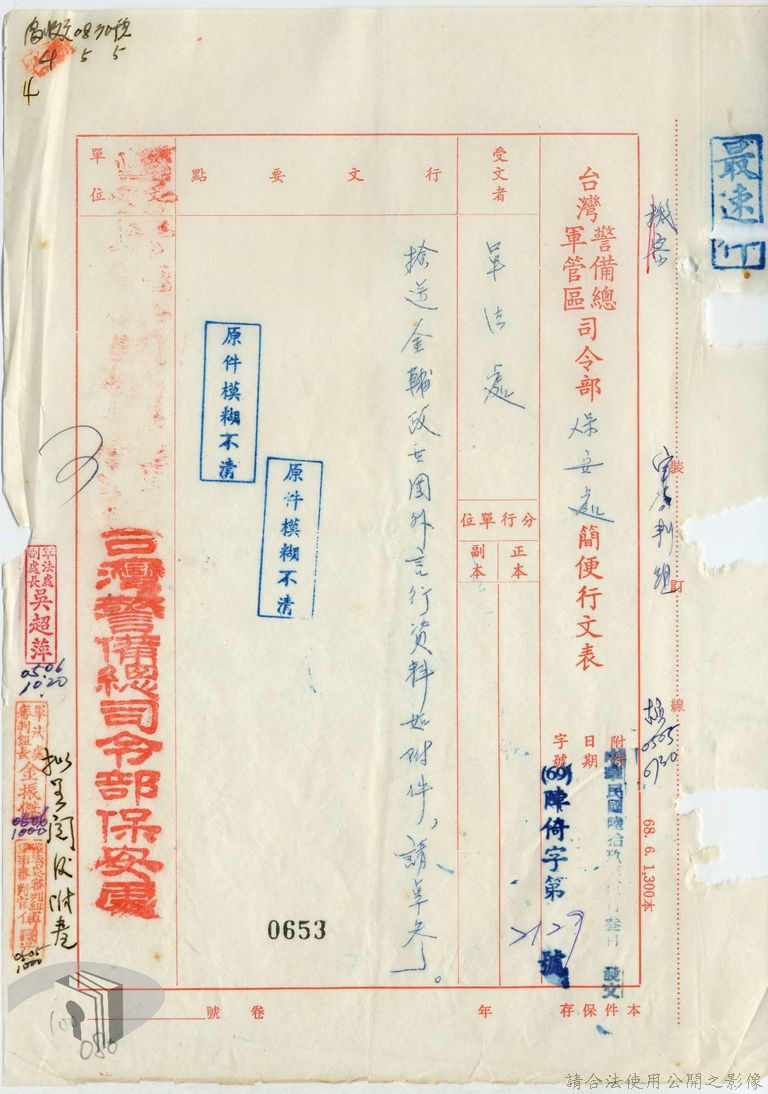 最速件
機密
審判組
裝
訂
線
68. 6. 1,300本
台灣警備總司令部
軍管區
保安處簡便行文表
附件
日期
字號
中華民國陸拾玖
發文
(69)陣倚字第2129號
受文者
軍法處
分行單位
正本
副本
行文要點
檢送金輔政在國外言行資料如附件,請卓參」。
原件模糊不清
原件模糊不清
發文單位
台灣警備總司令部保安處
0653
本件保存
年
卷
號
軍法處副處長吳超萍
0506
1020
軍法處審判組長金振傑
0506
1000
擬呈閱後附卷
0505
1000
4 5 5
4
100
080
請合法使用公開之影像